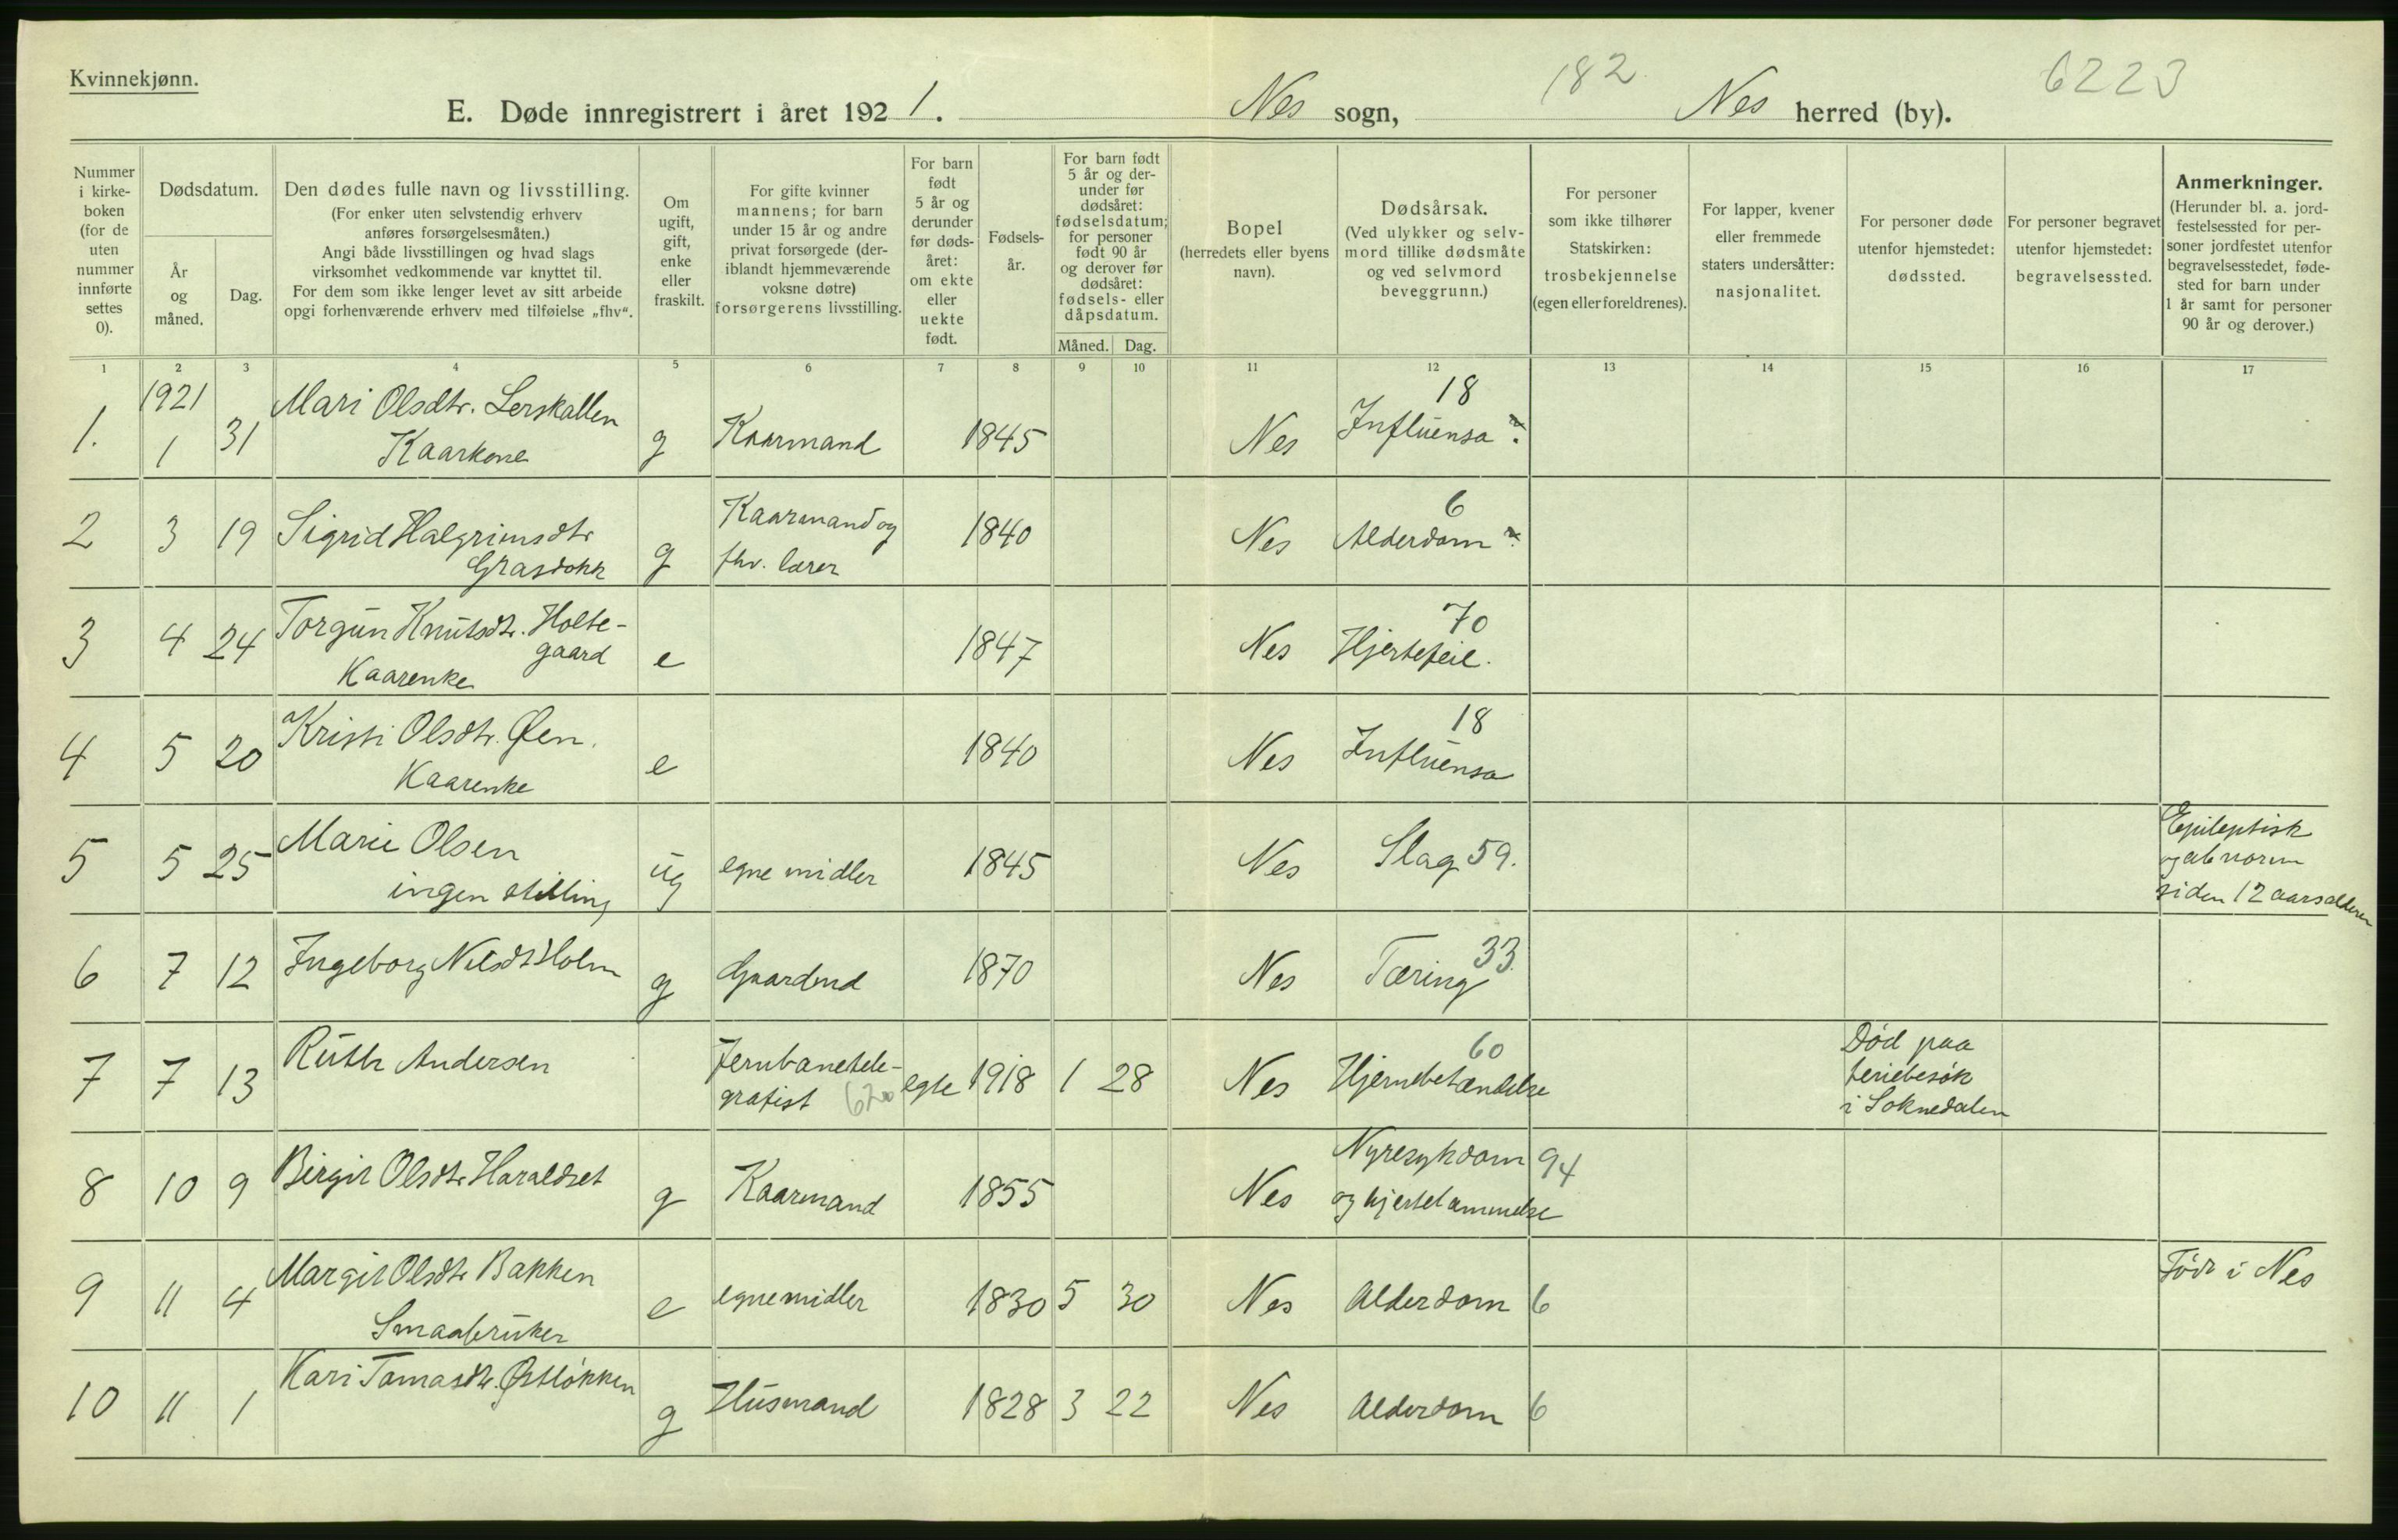 Kvinnekjønn.
182
6223
E. Døde innregistrert i året 1921. Nes sogn, Nes herred (by).
Nummer i kirke-boken (for de uten nummer innførte settes 0).
Dødsdatum.
År og måned.
Dag.
Den dødes fulle navn og livsstilling.
(For enker uten selvstendig erhverv
anføres forsørgelsesmåten.)
Angi både livsstillingen og hvad slags
virksomhet vedkommende var knyttet til.
For dem som ikke lenger levet av sitt arbeide
opgi forhenværende erhverv med tilføielse „fhv“.
Om
ugift,
gift,
enke
eller
fraskilt.
For gifte kvinner
mannens; for barn
under 15 år og andre
privat forsørgede (der-
iblandt hjemmeværende
voksne døtre)
forsørgerens livsstilling.
For barn
født
5 år og
derunder
før døds-
året:
om ekte
eller
uekte
født.
Fødsels-
år.
For barn født
5 år og der-
under før
dødsåret:
fødselsdatum;
for personer
født 90 år
og derover før
dødsåret:
fødsels- eller
dåpsdatum.
Måned. Dag.
Bopel
(herredets eller byens
navn).
Dødsårsak.
(Ved ulykker og selv-
mord tillike dødsmåte
og ved selvmord
beveggrunn.)
For personer
som ikke tilhører
Statskirken:
trosbekjennelse
(egen eller foreldrenes).
For lapper, kvener
eller fremmede
staters undersåtter:
nasjonalitet.
For personer døde
utenfor hjemstedet:
dødssted.
For personer begravet
utenfor hjemstedet:
begravelsessted.
Anmerkninger.
(Herunder bl. a. jord-
festelsessted for per-
soner jordfestet utenfor
begravelsesstedet, føde-
sted for barn under
1 år samt for personer
90 år og derover.)
1 2 3 4 5 6 7 8 9 10 11 12 13 14 15 16 17
1921 Mari Olsdtr. Lerskallen 18
1. 1 31 Kaarkone g Kaarmand 1845 Nes Influensa ?
2 3 19 Sigrid Halgrimsdtr g Kaarmand og 1840 Nes Alderdom ? 6
Grasdokk fhv. lærer
3 4 24 Torgun Knutsdtr. Holte- e 1847 Nes Hjertefeil. 70
gaard
Kaarenke
4 5 20 Kristi Olsdtr. Øen. e 1840 Nes Influensa 18
Kaarenke
5 5 25 Marie Olsen ug egne midler 1845 Nes Slag 59. Epileptisk
ingen stilling og abnorm
siden 12 aarsalderen
6 7 12 Ingeborg Nilsdt Holm g Gaardmd 1870 Nes Tæring 33.
7 7 13 Ruth Andersen Jernbanetele- egte 1918 1 28 Nes Hjernebetændelse 60 Død paa
grafist 620 feriebesøk
i Soknedalen
8 10 9 Birgit Olsdtr Haraldset g Kaarmand 1855 Nes Nyresykdom 94
og hjertelammelse
9 11 4 Margit Olsdtr Bakken e egne midler 1830 5 30 Nes Alderdom 6 Født i Nes
Smaabruker
10 11 1 Kari Tomasdtr. Østløkken g Husmand 1828 3 22 Nes Alderdom 6